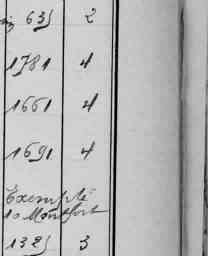 635 2
1781 4
1661 4
1691 4
Exempté
10 Montfort
1325 3